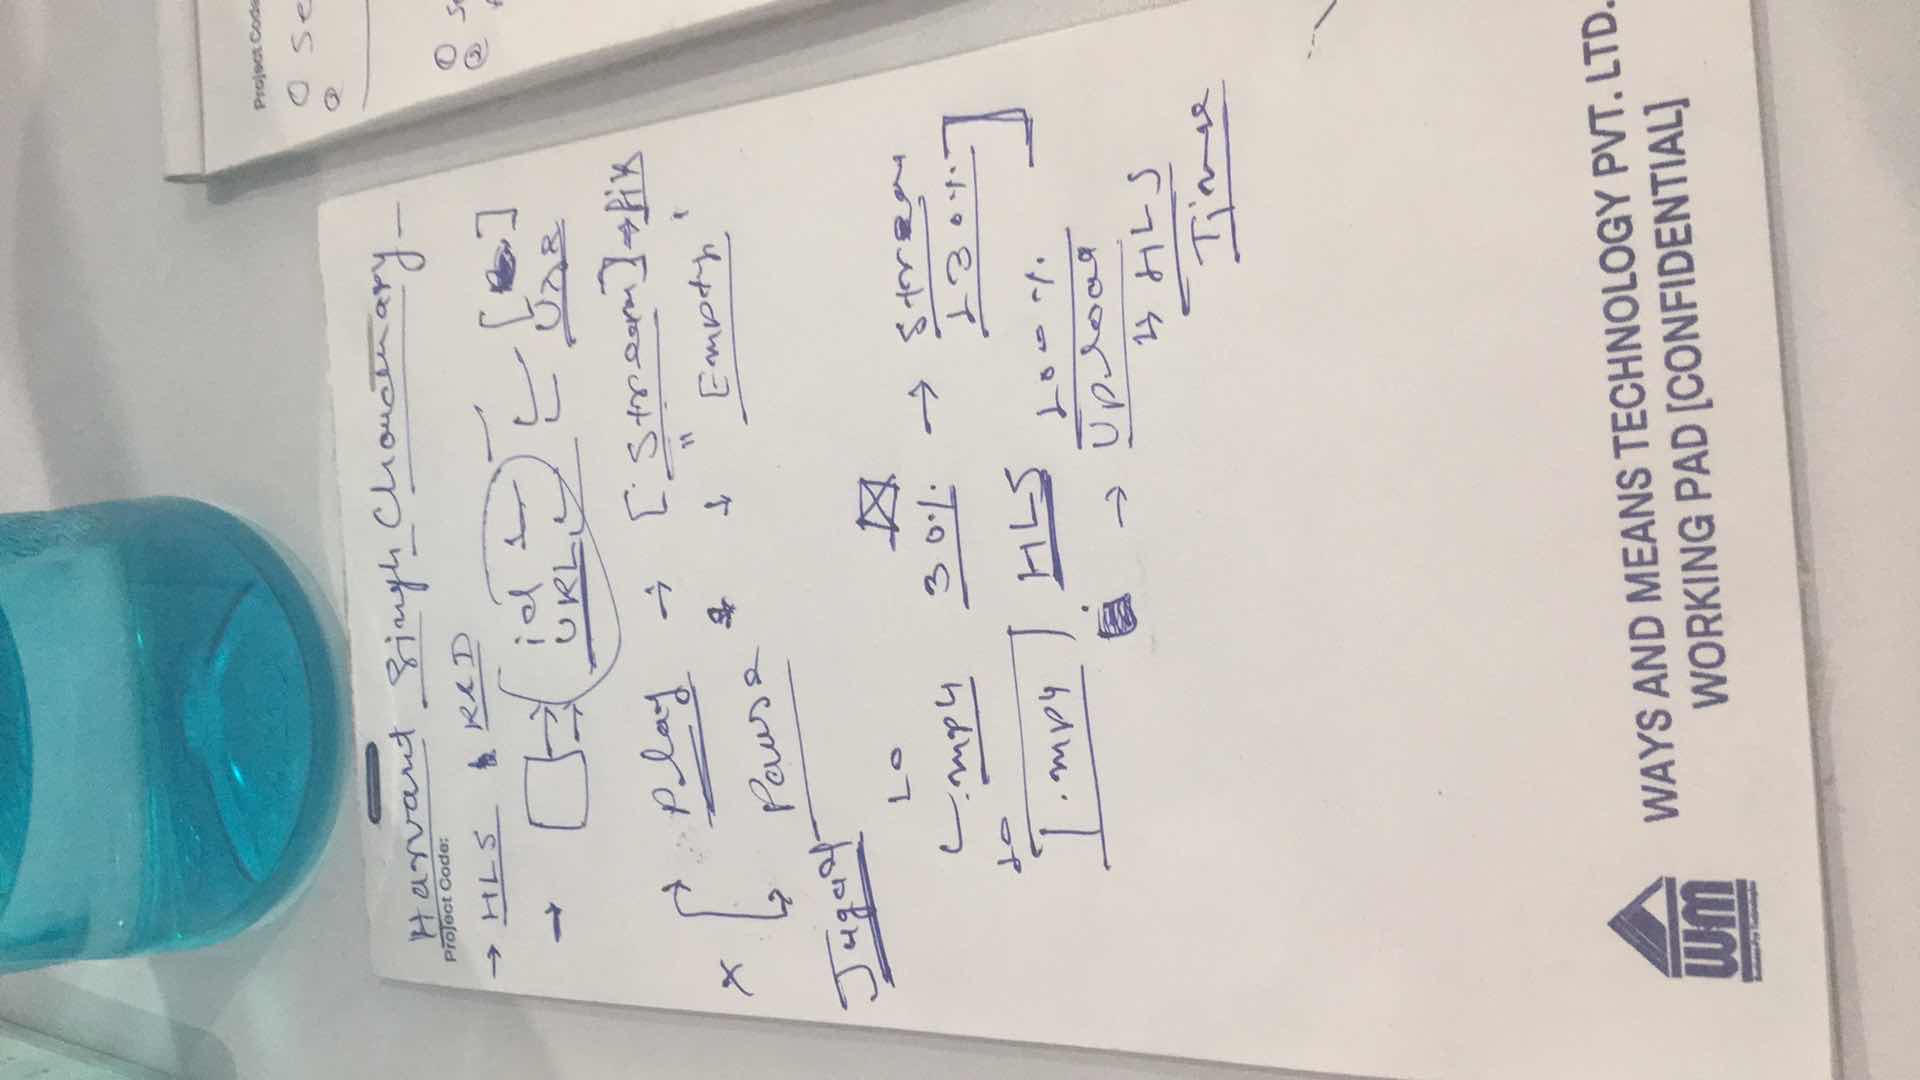 Project Code:
Harvant Singh Choudhary
Project Code:
→ HLS
→ id 1
URL
→ Play → ["Stream] → fix
x Pause ↓ [Empty]
Jugad
10
.mp4 30% → Stream
130%]
10
[.mp4] HLS 100%
→ Upload
↳ HLS
Time
WAYS AND MEANS TECHNOLOGY PVT. LTD.
WORKING PAD [CONFIDENTIAL]
WM